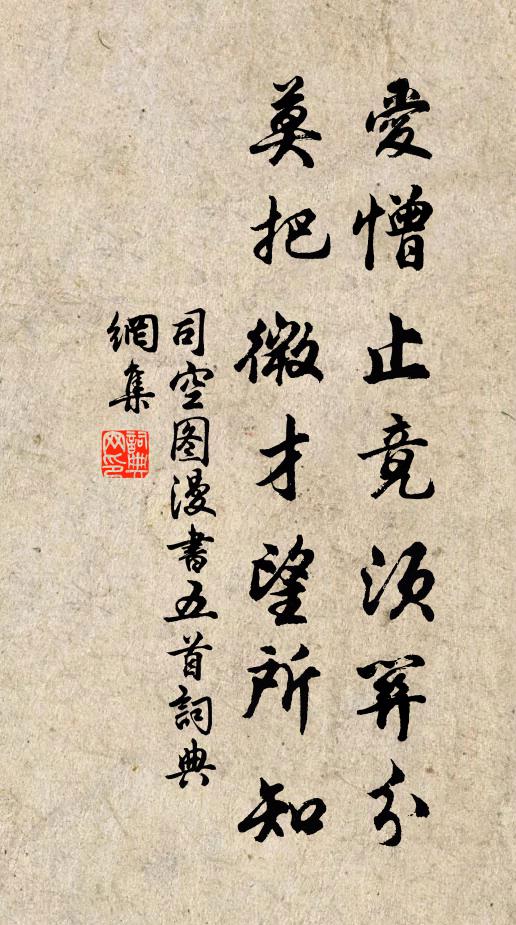 愛憎止竟須關分
莫把微才望所知
司空图漫書五首詞典
網集
詞典
网印